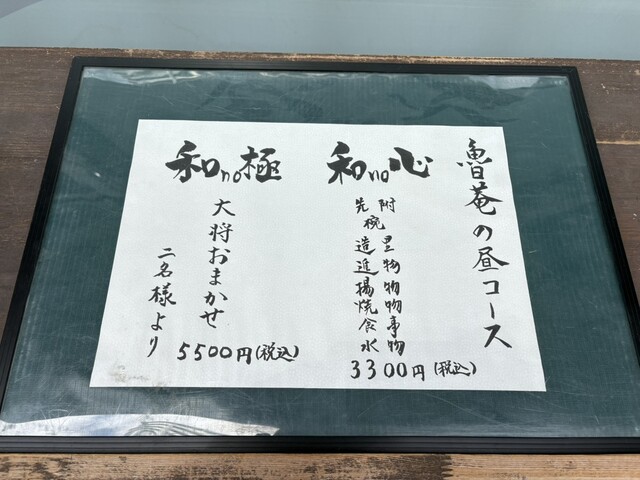 魯菴の昼コース
和no心
先附
椀
造里
進物
揚物
焼物
食事
水物
3300円(税込)
和no極
大将おまかせ
5500円(税込)
二名様より